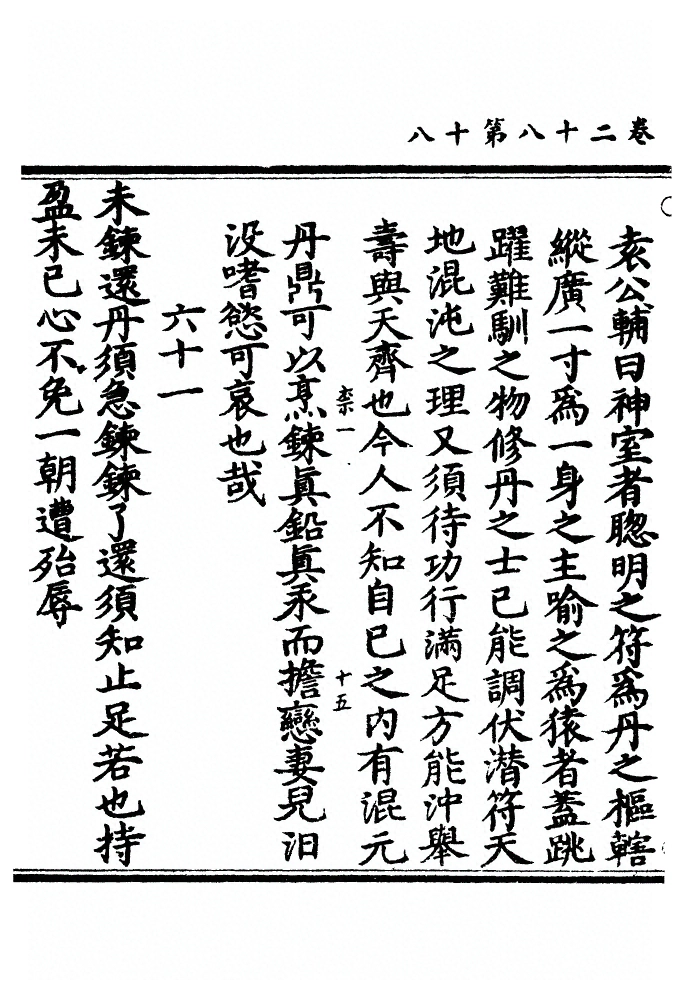 卷二十八第八十八
袁公輔曰神室者聰明之符爲丹之樞轄
縱廣一寸爲一身之主喻之爲猿者蓋跳
躍難馴之物修丹之士已能調伏潜符天
地混沌之理又須待功行滿足方能沖舉
壽與天齊也今人不知自已之内有混元
柰一
十五
丹鼎可以烹鍊眞鉛眞汞而擔戀妻兒汨
没嗜慾可哀也哉
六十一
未鍊還丹須急鍊鍊了還須知止足若也持
盈未已心不免一朝遭殆辱